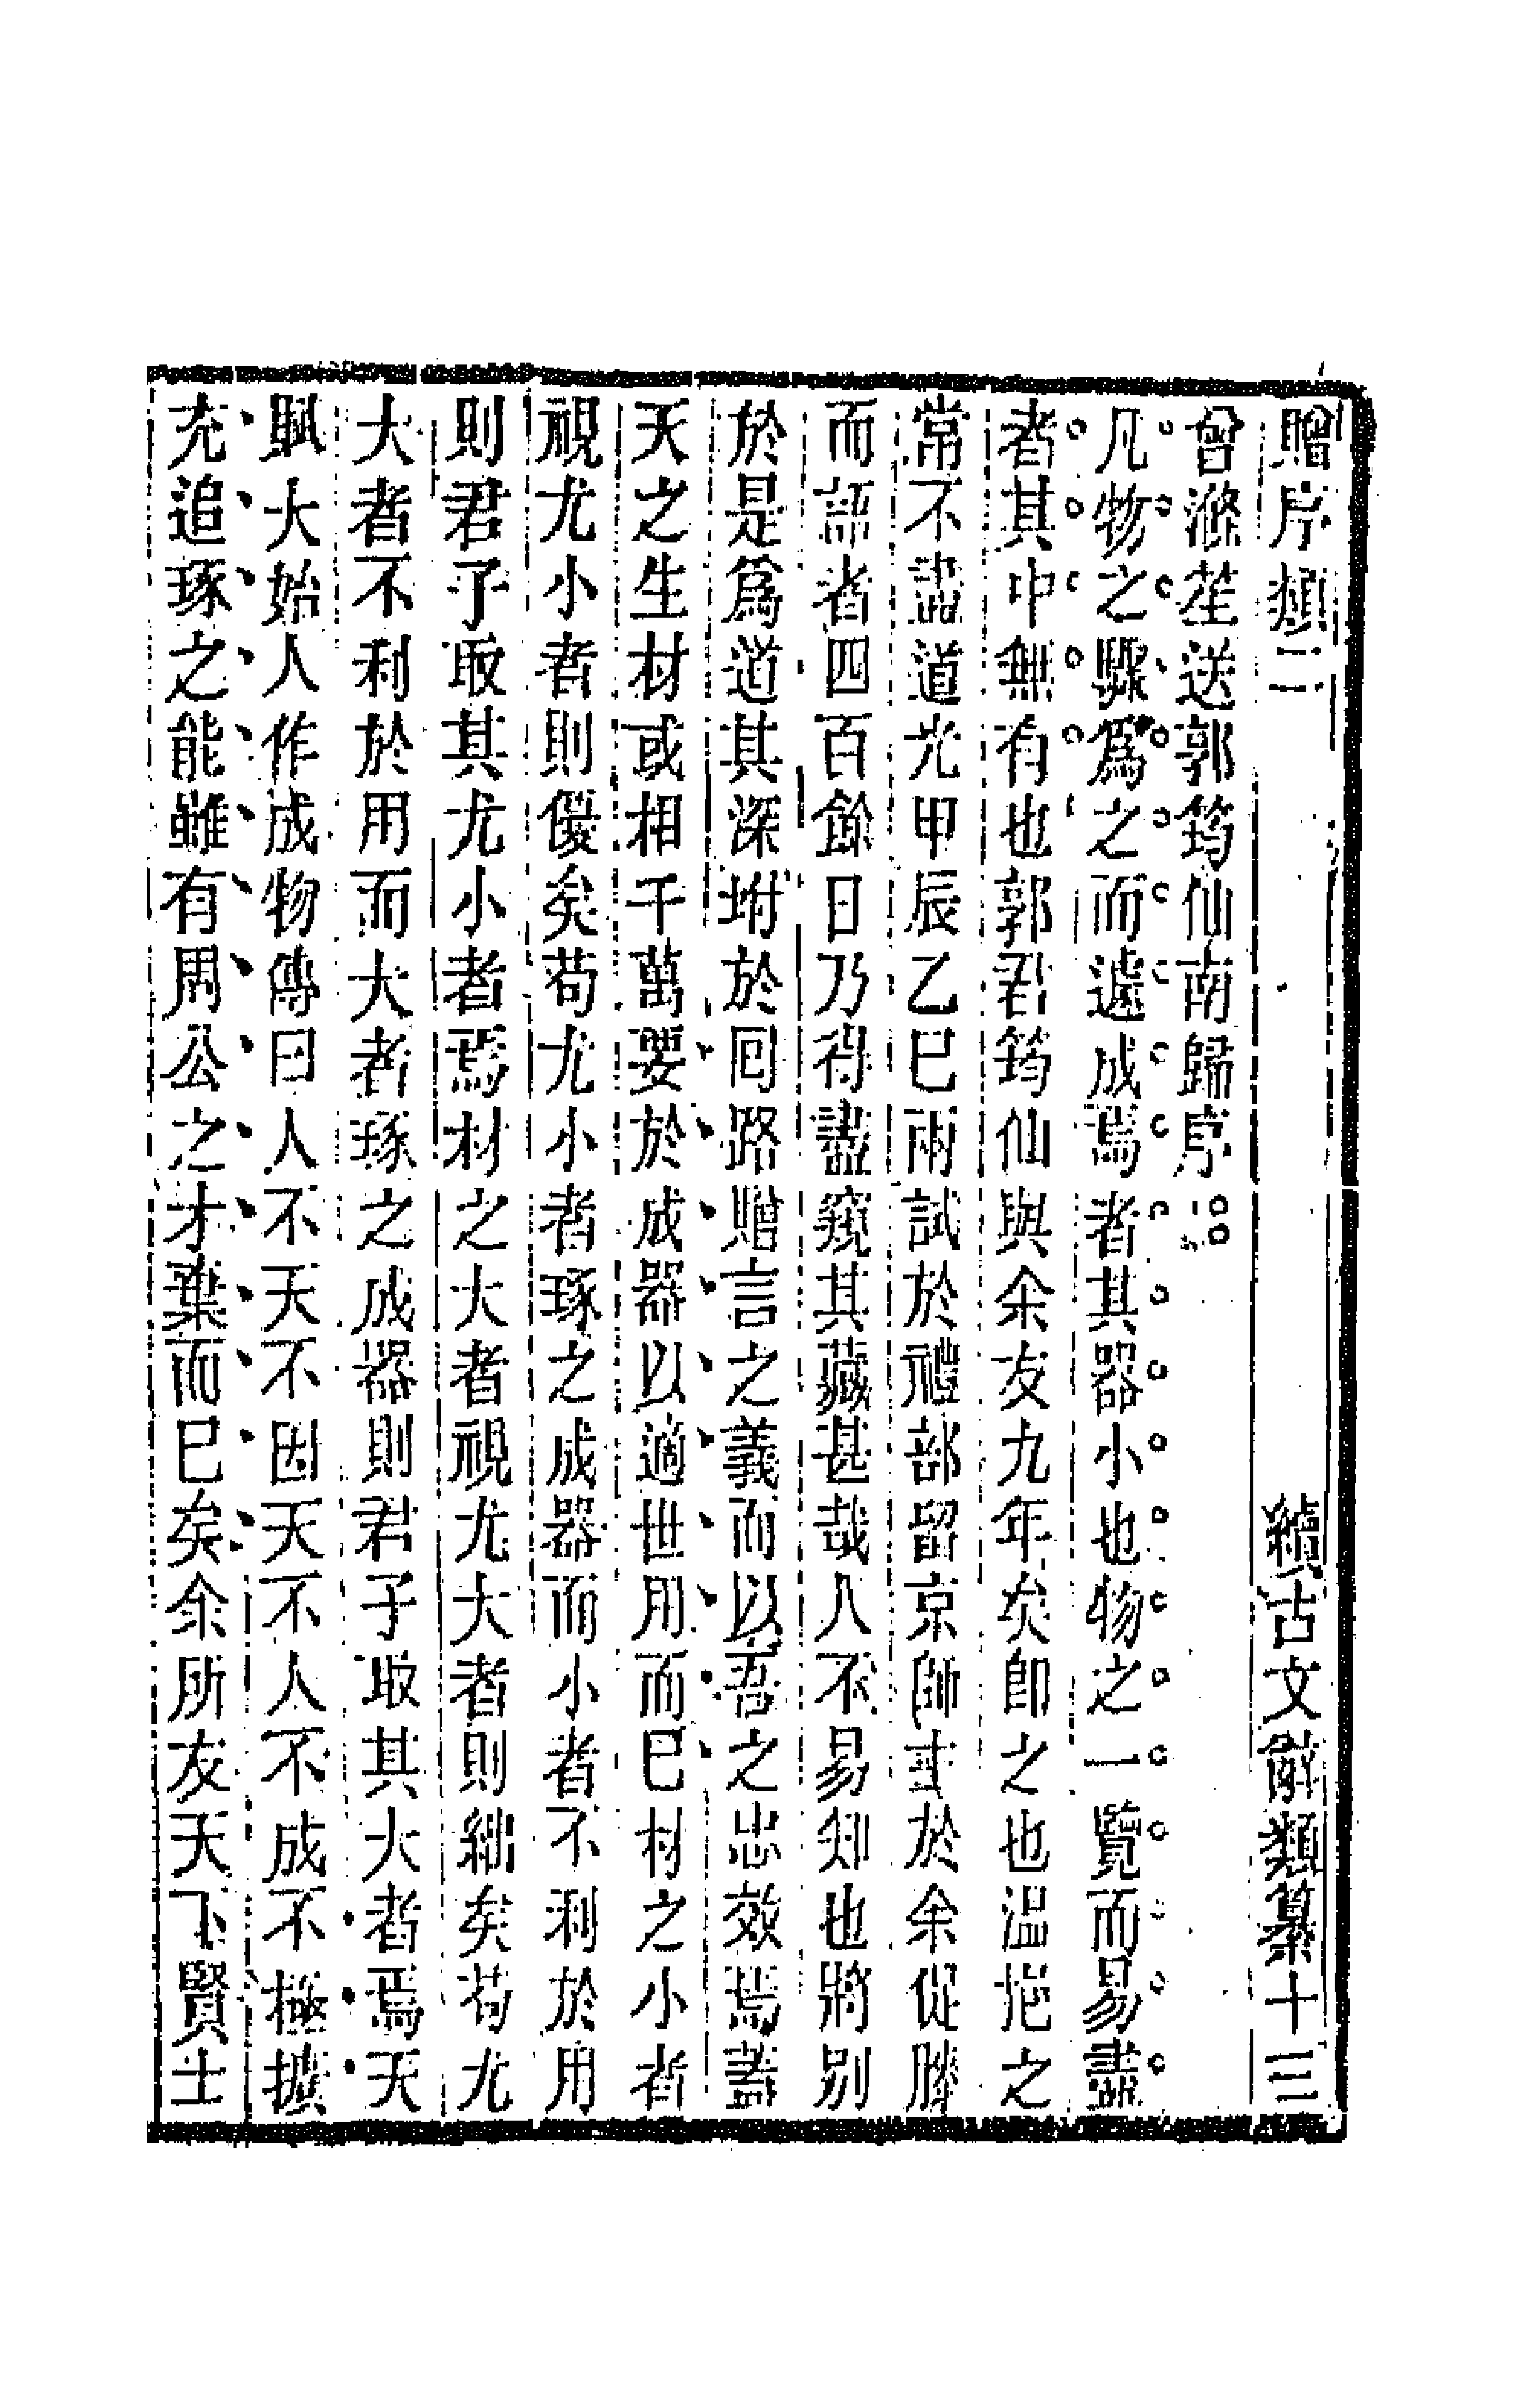 贈序類二 續古文辭類纂十三
曾滌笙送郭筠仙南歸序
凡物之驟爲之而遽成焉者其器小也物之一覽而易盡
者其中無有也郭君筠仙與余友九年矣卽之也温挹之
常不盡道光甲辰乙巳兩試於禮部留京師主於余促膝
而語者四百餘日乃得盡窺其藏甚哉人不易知也將別
於是爲道其深坿於回路贈言之義而以吾之忠效焉蓋
天之生材或相千萬要於成器以適世用而已材之小者
視尤小者則優矣苟尤小者琢之成器而小者不利於用
則君子取其尤小者焉材之大者視尤大者則絀矣苟尤
大者不利於用而大者琢之成器則君子取其大者焉天
賦大始人作成物傳曰人不天不因天不人不成不極擴
充追琢之能雖有周公之才棄而已矣余所友天下賢士